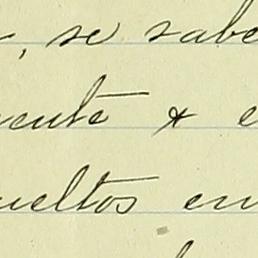 , se sabe
mente & e
ueltos en